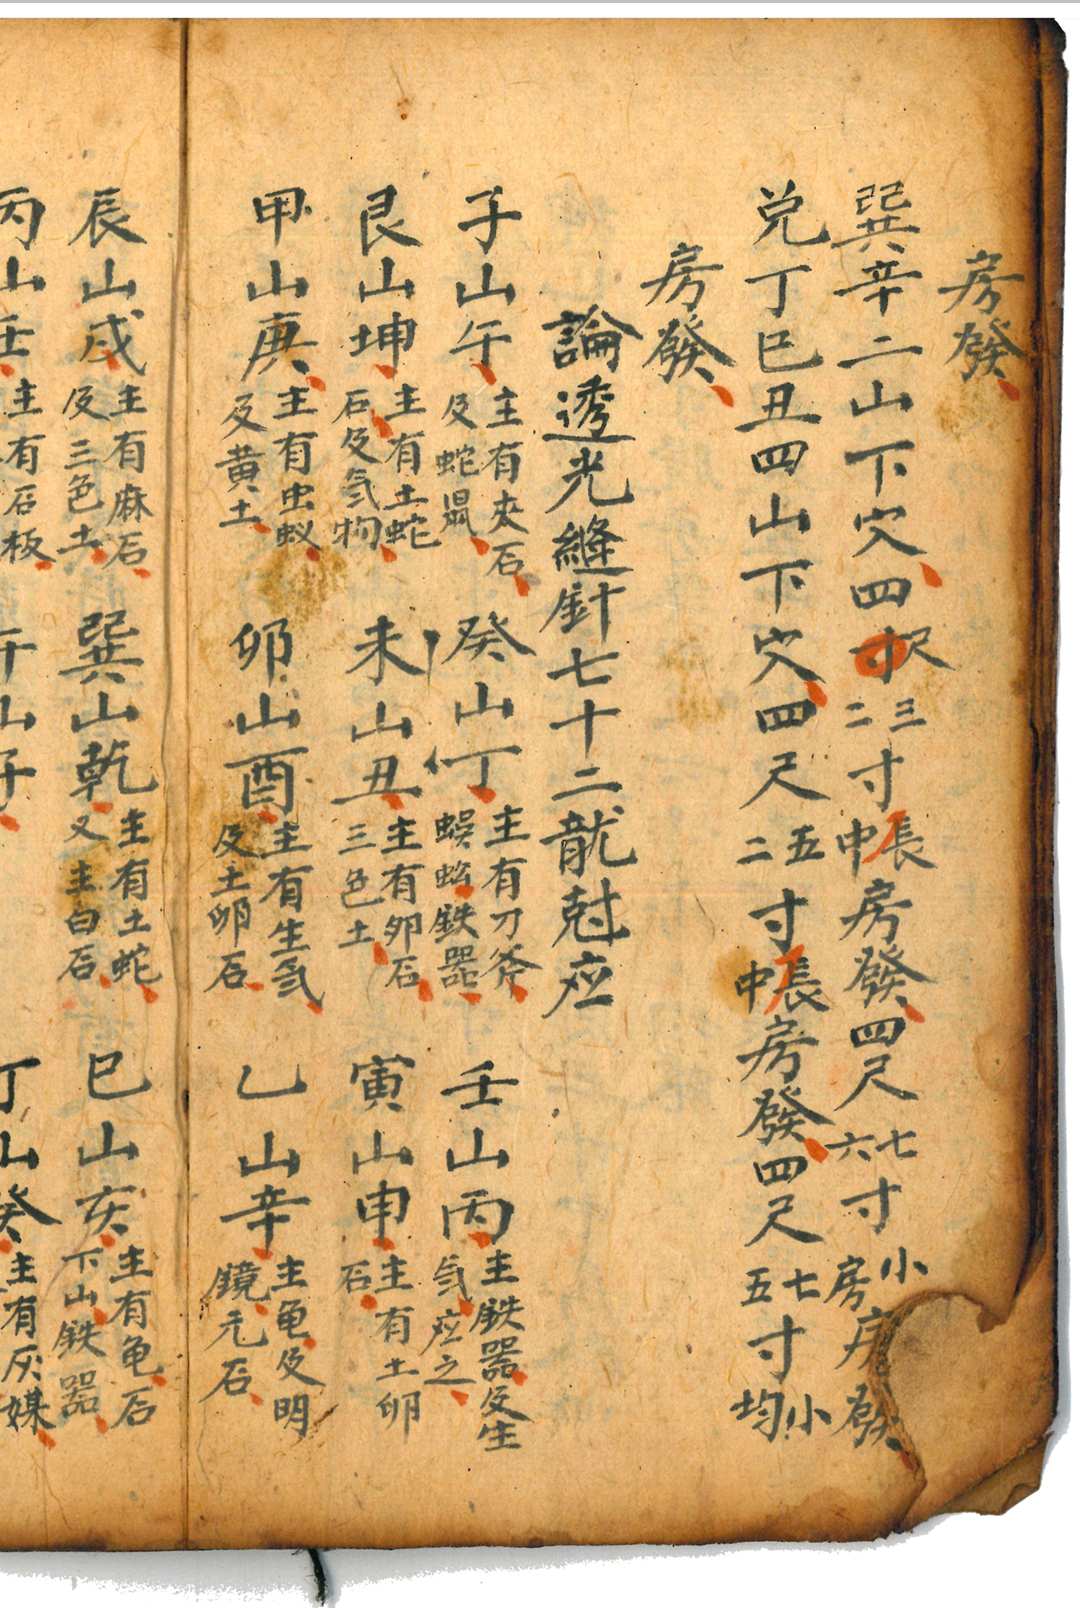 房發
巽辛二山下穴四尺三二寸長中房發四尺七六寸小房房發
兌丁巳丑四山下穴四尺五二寸長中房發四尺七五寸小均
房發
論透光縫針七十二龍尅应
子山午主有夾石及蛇鼠 癸山丁主有刀斧蜈蚣鉄器 壬山丙主鉄器及生氣应之
艮山坤主有土蛇石及氣物 未山丑主有卵石三色土 寅山申主有土卵石
甲山庚主有虫蚁及黄土 卯山酉主有生氣及土卵石 乙山辛主龟及明鏡元石
辰山戌主有麻石及三色土 巽山乾主有土蛇又主白石 巳山亥主有龟石下山鉄器
丙山壬主有石板 午山子 丁山癸主有灰媒